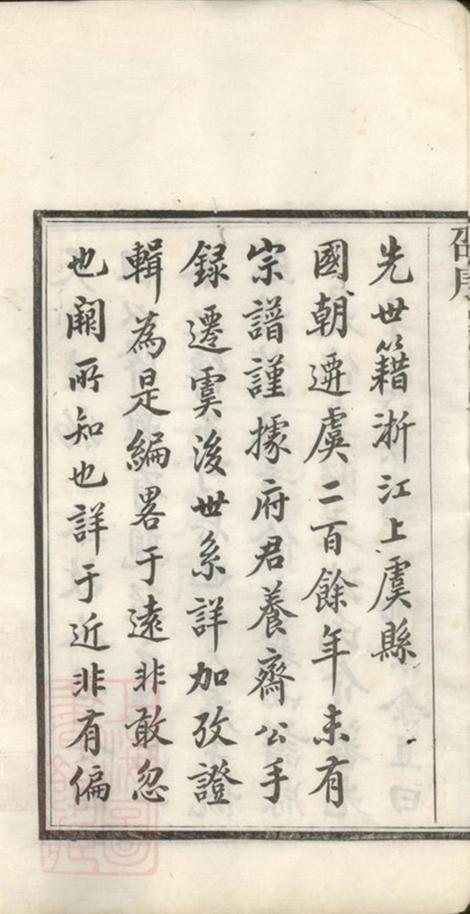 先世籍浙江上虞縣
國朝遷虞二百餘年未有
宗譜謹據府君養齋公手
錄遷虞後世系詳加攷證
輯為是編畧于遠非敢忽
也闕所知也詳于近非有偏